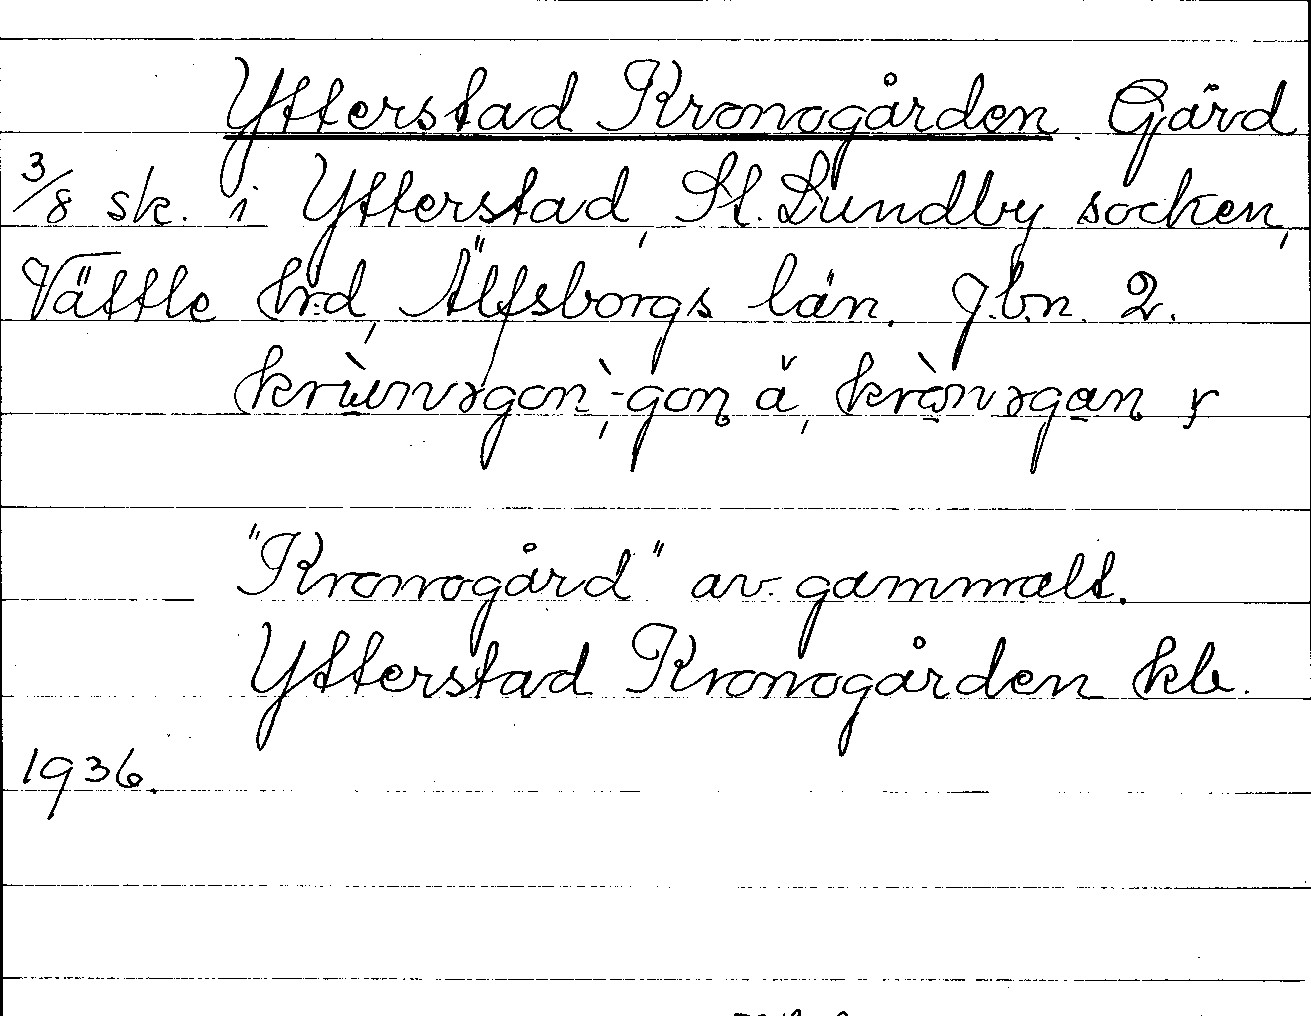 Ytterstad Kronogården. Gård
3/8 sk. i Ytterstad, St. Lundby socken,
Vättle hrd, Älfsborgs län. Jbn. 2.
"Kronogård" av gammalt.
Ytterstad Kronogården kb.
1936.